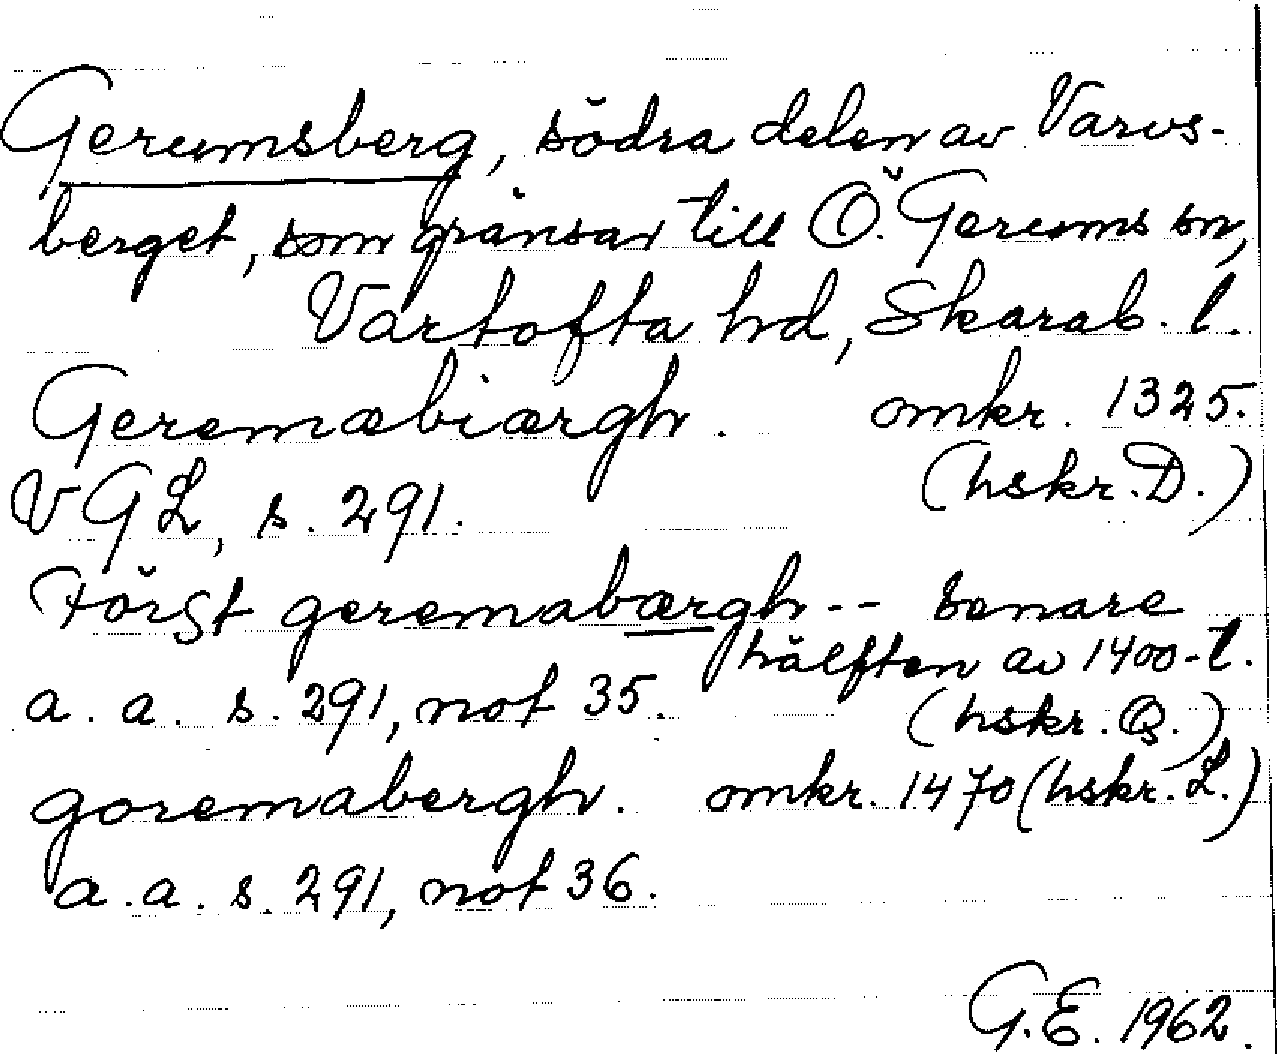 Gerumsberg, södra delen av Varvs-
berget, som gränsar till Ö. Gerums sn,
Vartofta hd, Skarab. l.
Geremæbiærgh. omkr. 1325.
VGL, s. 291. (hskr. D.)
Först geremabærgh -- senare
hälften av 1400-t.
a. a. s. 291, not 35. (hskr. Q.)
goremabergh. omkr. 1470 (hskr. L.)
a. a. s. 291, not 36.
G.E. 1962.